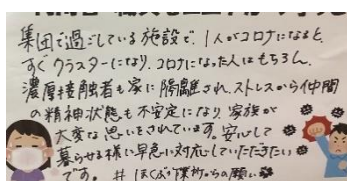 集団で過ごしている施設で、1人がコロナになると、
すぐクラスターになり、コロナになった人はもちろん、
濃厚接触者も家に隔離され、ストレスから仲間
の精神状態も不安定になり、家族が
大変な思いをされています。安心して
暮らせる様に早急に対応していただきたい
です。 # ほくぶ 作業所からの願い